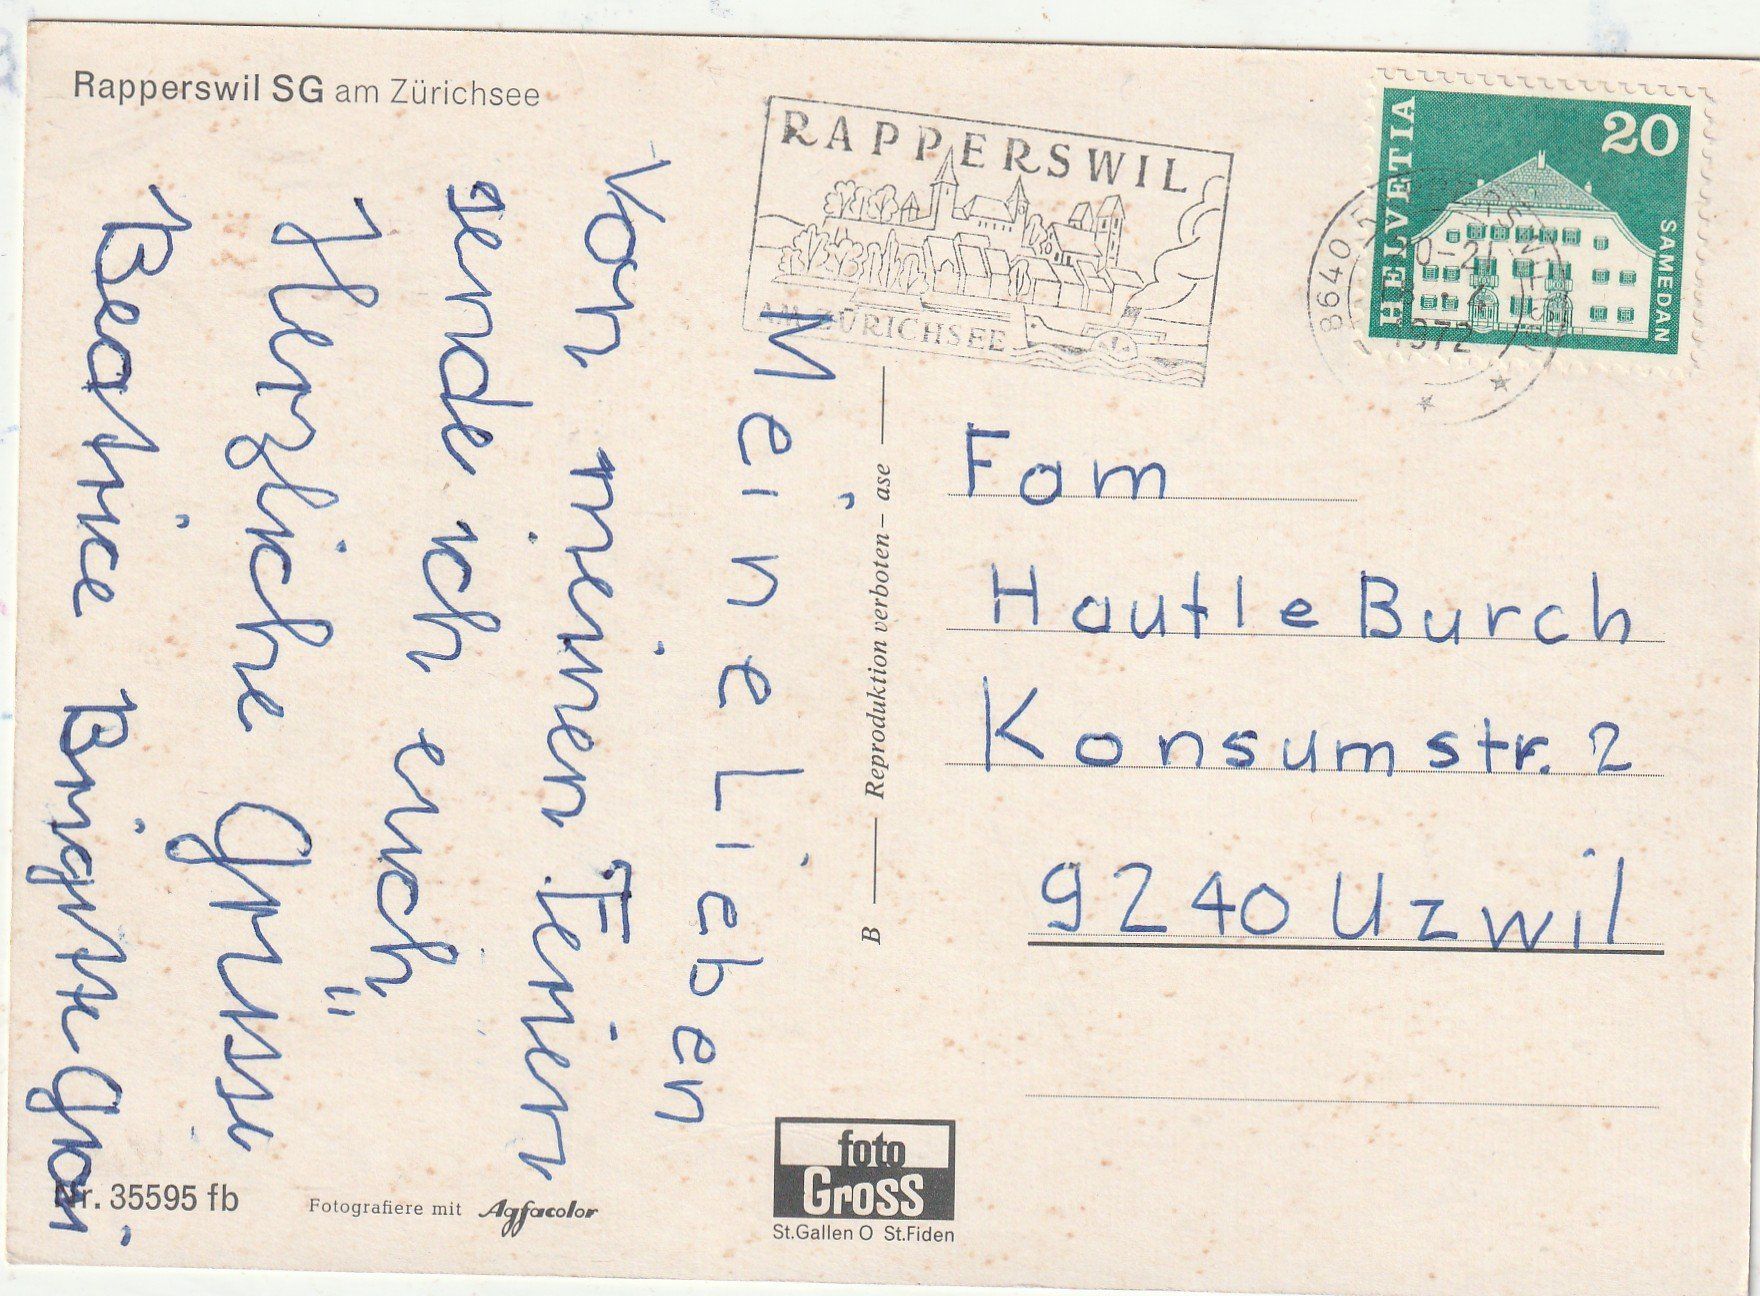 Rapperswil SG am Zürichsee
RAPPERSWIL
AM ZÜRICHSEE
HELVETIA
20
SAMEDAN
8640
20-21
1972
Meine Lieben
Von meinen Ferien
sende ich euch
Herzliche Grüsse
Beatrice Brigitte
Fam
Hautle Burch
Konsumstr. 2
9240 Uzwil
B — Reproduktion verboten – ase —
Nr. 35595 fb
Fotografiere mit Agfacolor
foto
Gross
St.Gallen O St.Fiden